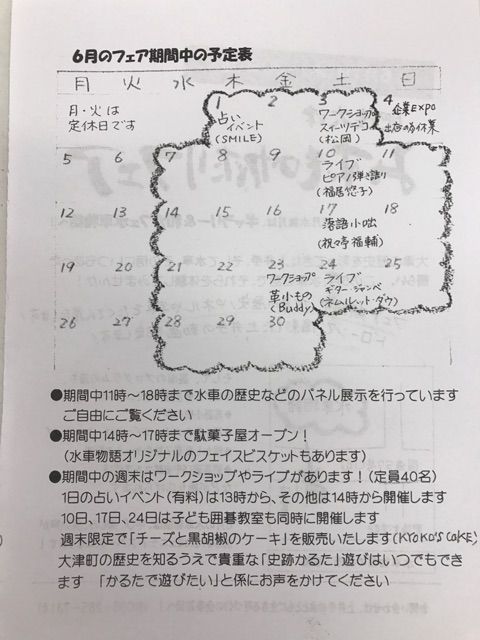 6月のフェア期間中の予定表
月 火 水 木 金 土 日
月・火は
定休日です
1 2 3 4
占い
イベント
(SMILE)
ワークショップ
スイーツデコ
(松岡)
企業EXPO
出店の為休業
5 6 7 8 9 10 11
ライブ
ピアノ弾き語り
(福居悠子)
12 13 14 15 16 17 18
落語小咄
(祝々亭福輔)
19 20 21 22 23 24 25
ワークショップ
革小もの
(Buddy)
ライブ
ギター・ジャンベ
(ネムルレット・ダウ)
26 27 28 29 30
●期間中11時～18時まで水車の歴史などのパネル展示を行っています
ご自由にご覧ください
●期間中14時～17時まで駄菓子屋オープン!
(水車物語オリジナルのフェイスビスケットもあります)
●期間中の週末はワークショップやライブがあります!(定員40名)
1日の占いイベント(有料)は13時から、その他は14時から開催します
10日、17日、24日は子ども囲碁教室も同時に開催します
週末限定で「チーズと黒胡椒のケーキ」を販売いたします(KYOKO'S CAKE)
大津町の歴史を知るうえで貴重な「史跡かるた」遊びはいつでもでき
ます 「かるたで遊びたい」と係にお声をかけてください